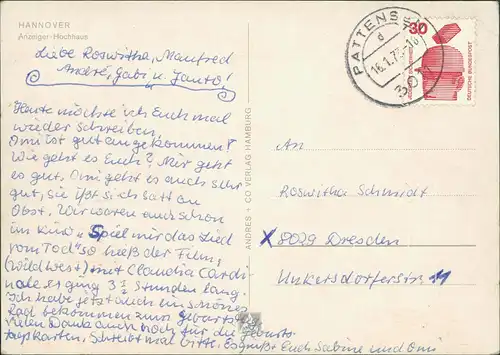 HANNOVER
Anzeiger-Hochhaus
Liebe Roswitha, Manfred
André, Gabi u. Janto!
Heute möchte ich Euch mal
wieder schreiben,
Omi ist gut angekommen!
Wie geht es Euch? Mir geht
es gut, Omi geht es auch sehr
gut, sie ißt sich satt an
Obst. Wir waren auch schon
im Kino "Spiel mir das Lied
vom Tod" so hieß der Film,
(Wildwest) mit Claudia Cardi-
nale es ging 3½ Stunden lang.
Ich habe jetzt auch ein schönes
Rad bekommen zum Geburtstag
vielen Dank auch noch für die Geburts-
tagskarten, Schreibt mal bitte. Es grüßt Euch Sabine und Omi
ANDRES + CO VERLAG HAMBURG
PATTENSEN
d
16.1.7
30
DEUTSCHE BUNDESPOST
An
Roswitha Schmidt
X 8029 Dresden
Unkersdorferstr. 11